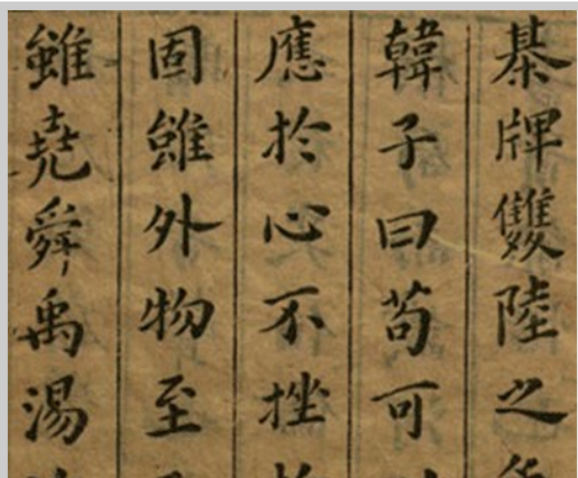 棊牌雙陸之
韓子曰苟可
應於心不挫
固雖外物至
雖堯舜禹湯